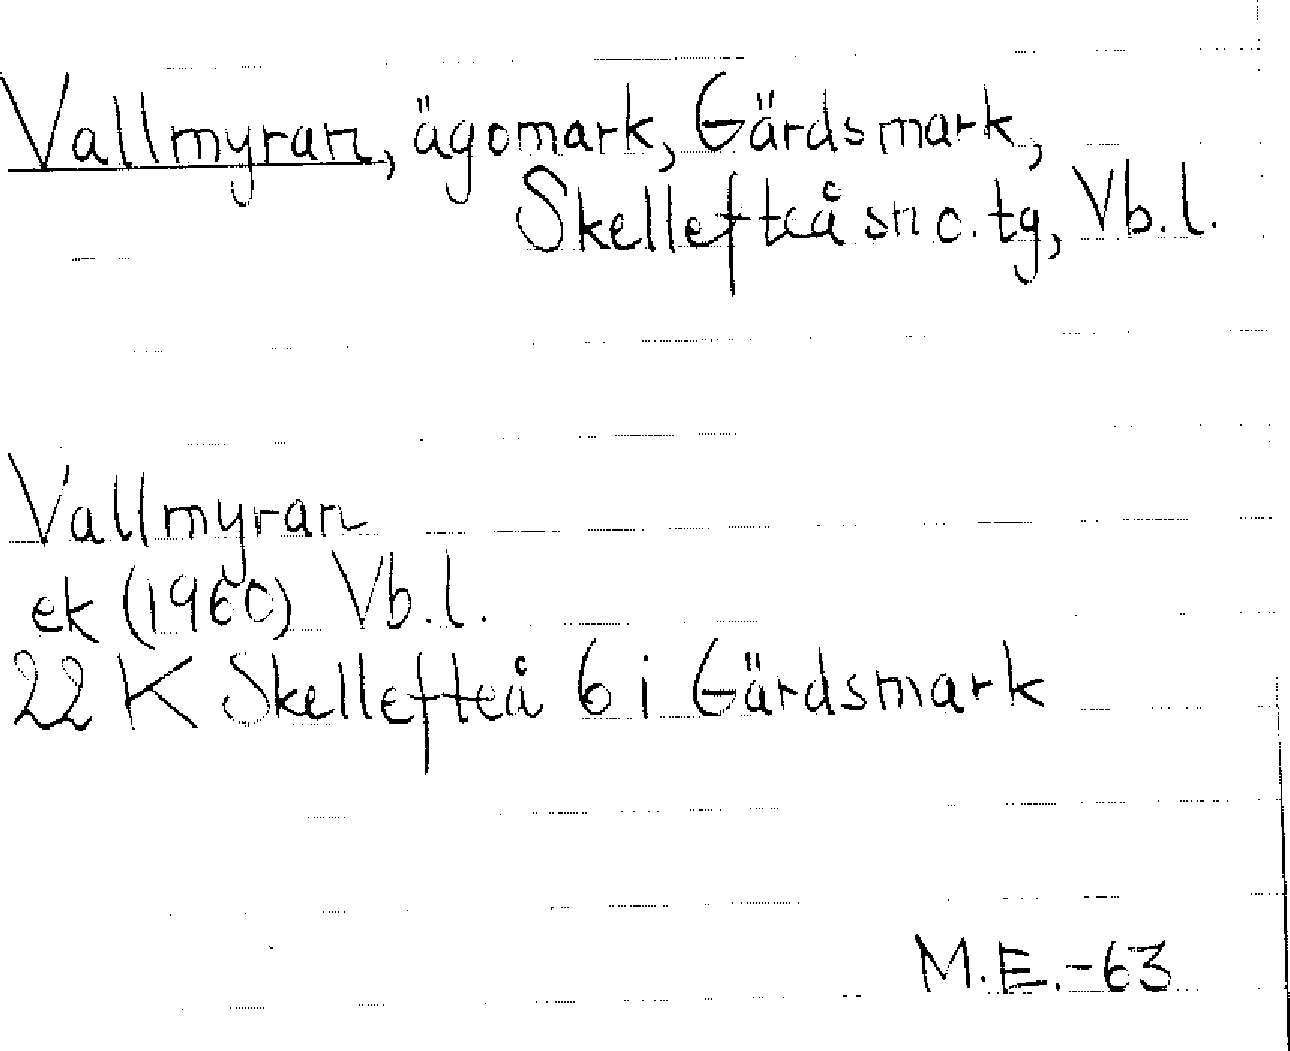 Vallmyran, ägomark, Gärdsmark,
Skellefteå sn o. tg, Vb. l.
Vallmyran
ek (1960) Vb. l.
22 K Skellefteå 6 i Gärdsmark
M.E.-63